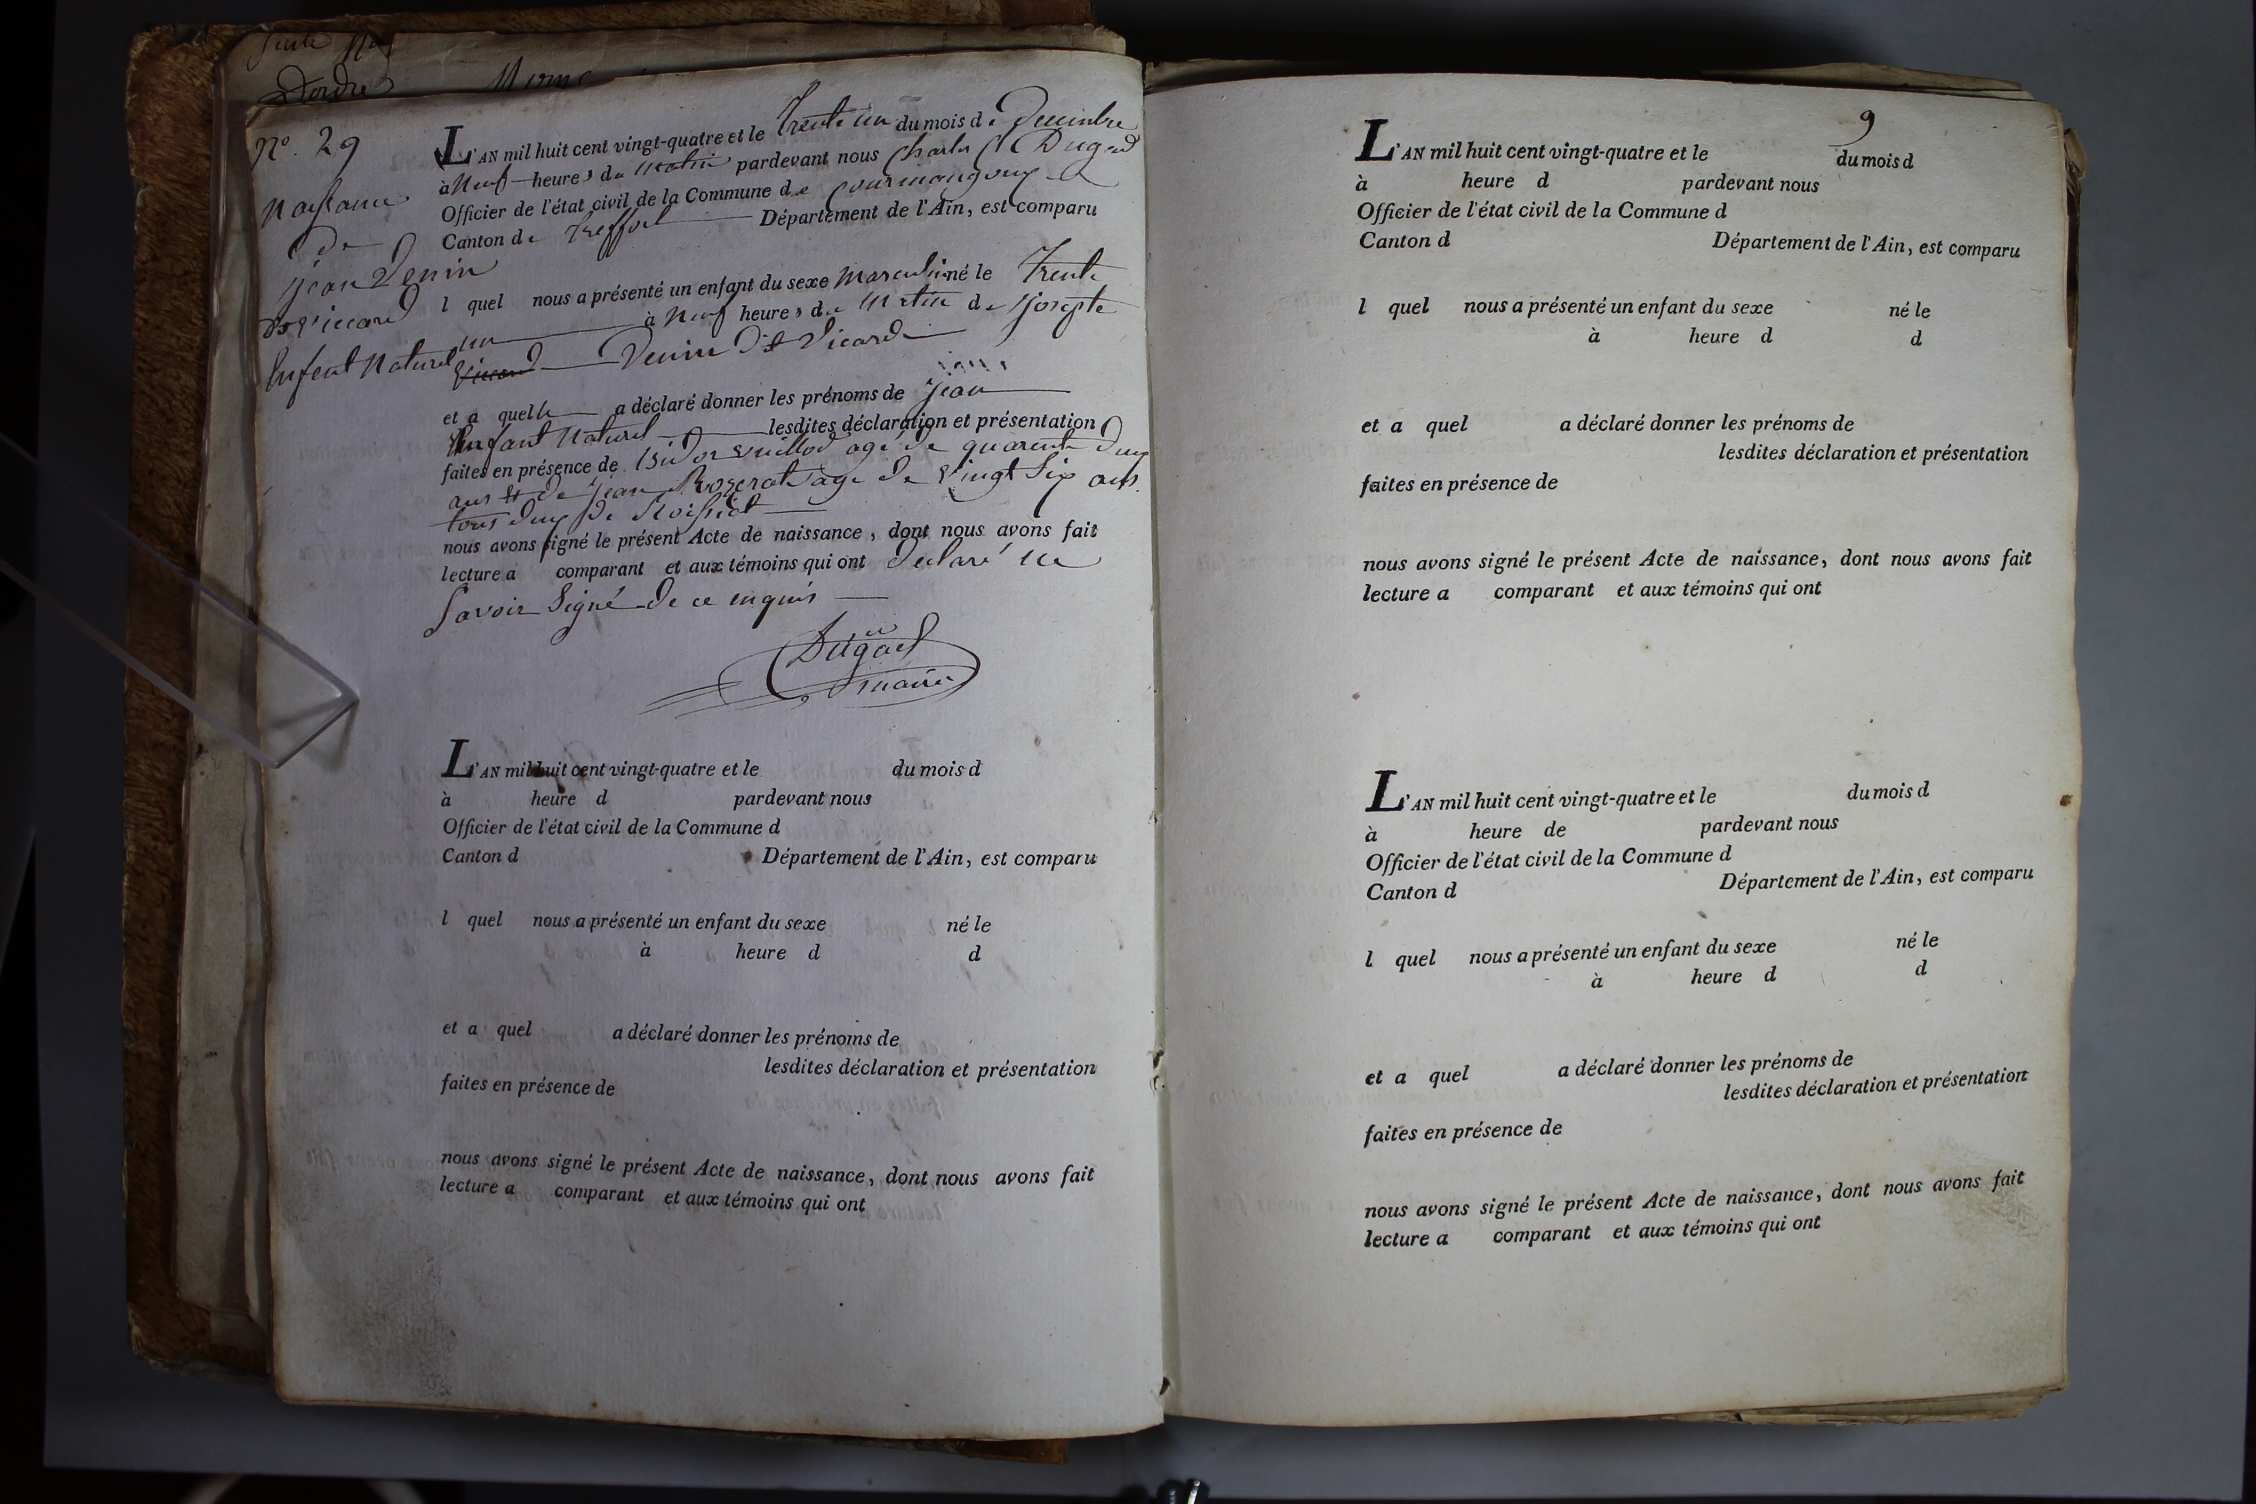 No. 29
Naissance
de
jean Denin
dit Vicard
Enfent Naturel
L'AN mil huit cent vingt-quatre et le Trente un du mois de Decembre
à Neuf heures du Matin pardevant nous Charles Dugad
Officier de l'état civil de la Commune de Courmangoux
Canton de Treffort Département de l'Ain, est comparu
l quel nous a présenté un enfant du sexe Masculin né le Trente
un à Neuf heures du Matin de Josepte
Vicard Denin dit Vicard
et a quel a déclaré donner les prénoms de jean
Enfant Naturel lesdites déclaration et présentation
faites en présence de vuillod agé de quarente deux
ans et de jean agé de vingt Six ans
tous deux de Roissiat
nous avons signé le présent Acte de naissance, dont nous avons fait
lecture a comparant et aux témoins qui ont declaré ne
Savoir Signé de ce enquis
Dugad
maire
L'AN mil huit cent vingt-quatre et le du mois d
à heure d pardevant nous
Officier de l'état civil de la Commune d
Canton d Département de l'Ain, est comparu
l quel nous a présenté un enfant du sexe né le
à heure d d
et a quel a déclaré donner les prénoms de
lesdites déclaration et présentation
faites en présence de
nous avons signé le présent Acte de naissance, dont nous avons fait
lecture a comparant et aux témoins qui ont
9
L'AN mil huit cent vingt-quatre et le du mois d
à heure d pardevant nous
Officier de l'état civil de la Commune d
Canton d Département de l'Ain, est comparu
l quel nous a présenté un enfant du sexe né le
à heure d d
et a quel a déclaré donner les prénoms de
lesdites déclaration et présentation
faites en présence de
nous avons signé le présent Acte de naissance, dont nous avons fait
lecture a comparant et aux témoins qui ont
L'AN mil huit cent vingt-quatre et le du mois d
à heure de pardevant nous
Officier de l'état civil de la Commune d
Canton d Département de l'Ain, est comparu
l quel nous a présenté un enfant du sexe né le
à heure d d
et a quel a déclaré donner les prénoms de
lesdites déclaration et présentation
faites en présence de
nous avons signé le présent Acte de naissance, dont nous avons fait
lecture a comparant et aux témoins qui ont